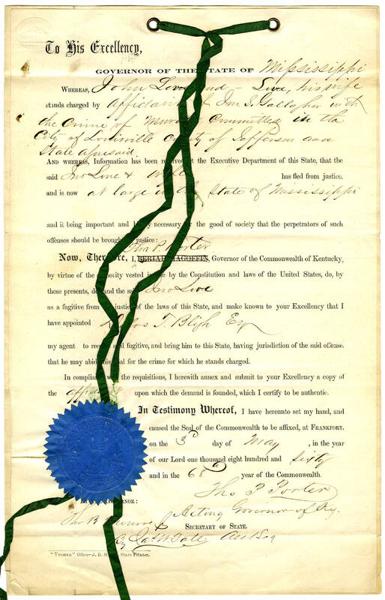 To His Excellency,
GOVERNOR OF THE STATE OF Mississippi
WHEREAS, John Live and Live, his wife
stands charged by affidavit of Jno. S. Gallagher with
the crime of Murder Committed in the
City of Louisville County of Jefferson and
State aforesaid
AND WHEREAS, Information has been received at the Executive Department of this State, that the
said Jno Live & wife has fled from justice.
and is now at large in the State of Mississippi
and it being important and highly necessary for the good of society that the perpetrators of such
offenses should be brought to justice:
Thos P. Porter
Now, Therefore, I, BERIAH MAGOFFIN, Governor of the Commonwealth of Kentucky,
by virtue of the authority vested in me by the Constitution and laws of the United States, do, by
these presents, demand the said Jno Live
as a fugitive from the justice of the laws of this State, and make known to your Excellency that I
have appointed T. Bligh Esq
my agent to receive said fugitive, and bring him to this State, having jurisdiction of the said offense.
that he may abide his trial for the crime for which he stands charged.
In compliance with the requisitions, I herewith annex and submit to your Excellency a copy of
the affidavit upon which the demand is founded, which I certify to be authentic.
In Testimony Whereof, I have hereunto set my hand, and
caused the Seal of the Commonwealth to be affixed, at FRANKFORT,
on the 3d day of May, in the year
of our Lord one thousand eight hundred and sixty
and in the 68d year of the Commonwealth.
Tho P Porter
GOVERNOR: Acting Governor of Ky.
Tho B Monroe
SECRETARY OF STATE.
By Jas W Tate Asst Sec
"YEOMAN" Office—J. B. State Printer.